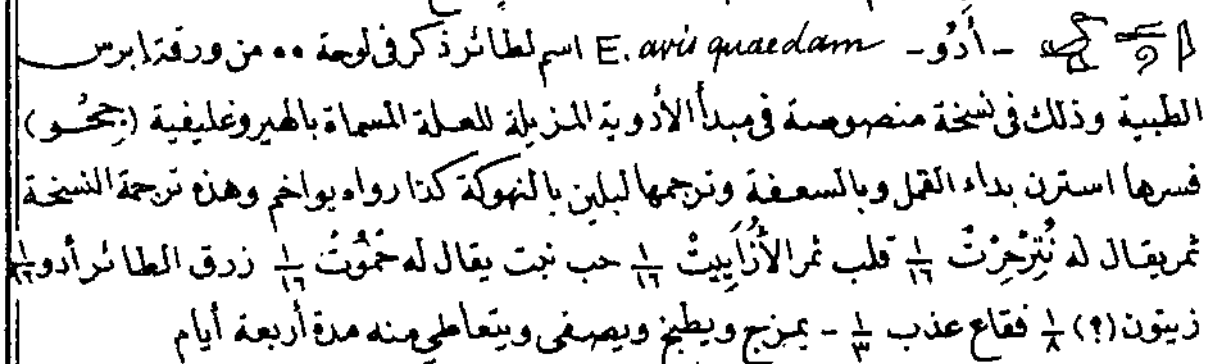 - أَدُو - E. avis quaedam اسم لطائر ذكر فى لوحة ٥٥ من ورقة ابرس
الطبية وذلك فى نسخة منصوصة فى مبدأ الأدوية المزيلة للعلة المسماة بالهيروغليفية (جحُو)
فسرها استرن بداء القمل وبالسعفة وترجمها لبلين بالنهوكة كذا رواه يواخم وهذه ترجمة النسخة
ثمر يقال له نُتِرْحِرْتْ ١/١٦ قلب ثمر الأُزْاَبِيتْ ١/١٦ حب نبت يقال له حَمُّوتُ ١/١٦ زرق الطائر أدو ١/١٦
زيتون (؟) ١/٨ فقاع عذب ١/٣ - يمزج ويطبخ ويصفى ويتعاطى منه مدة أربعة أيام